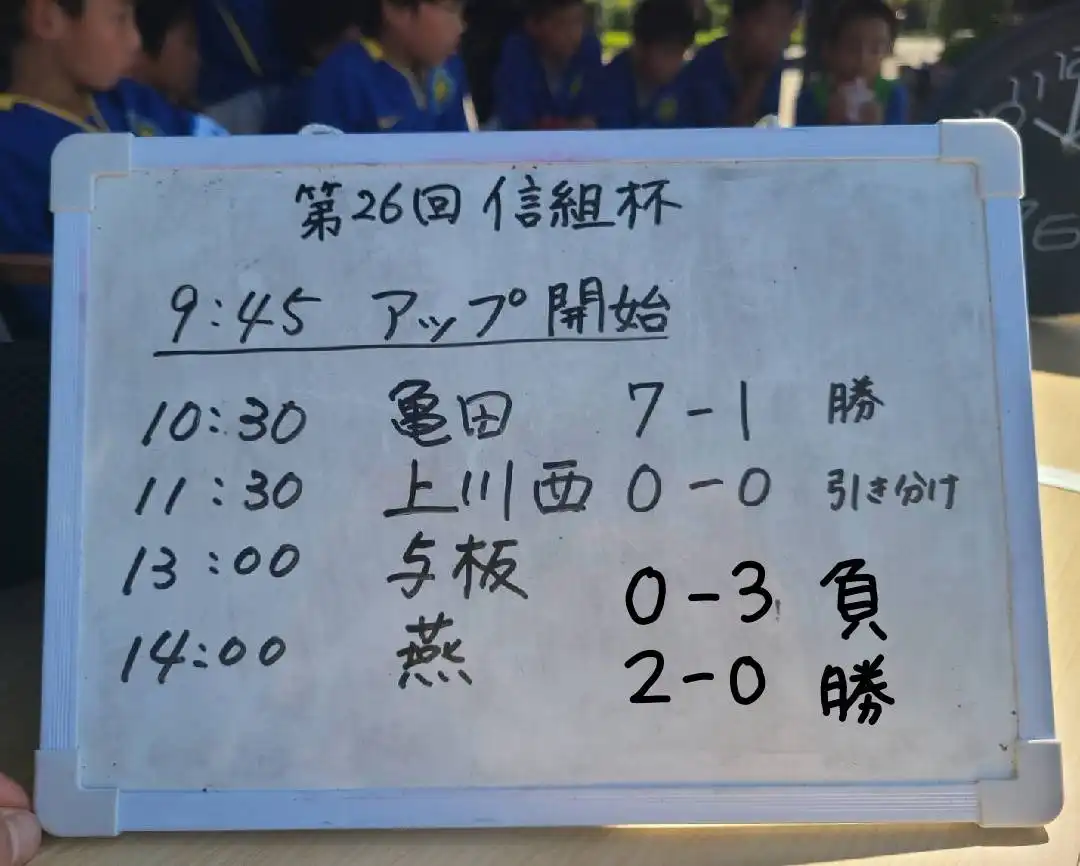 第26回 信組杯
9:45 アップ開始
10:30 亀田 7-1 勝
11:30 上川西 0-0 引き分け
13:00 与板 0-3 負
14:00 燕 2-0 勝